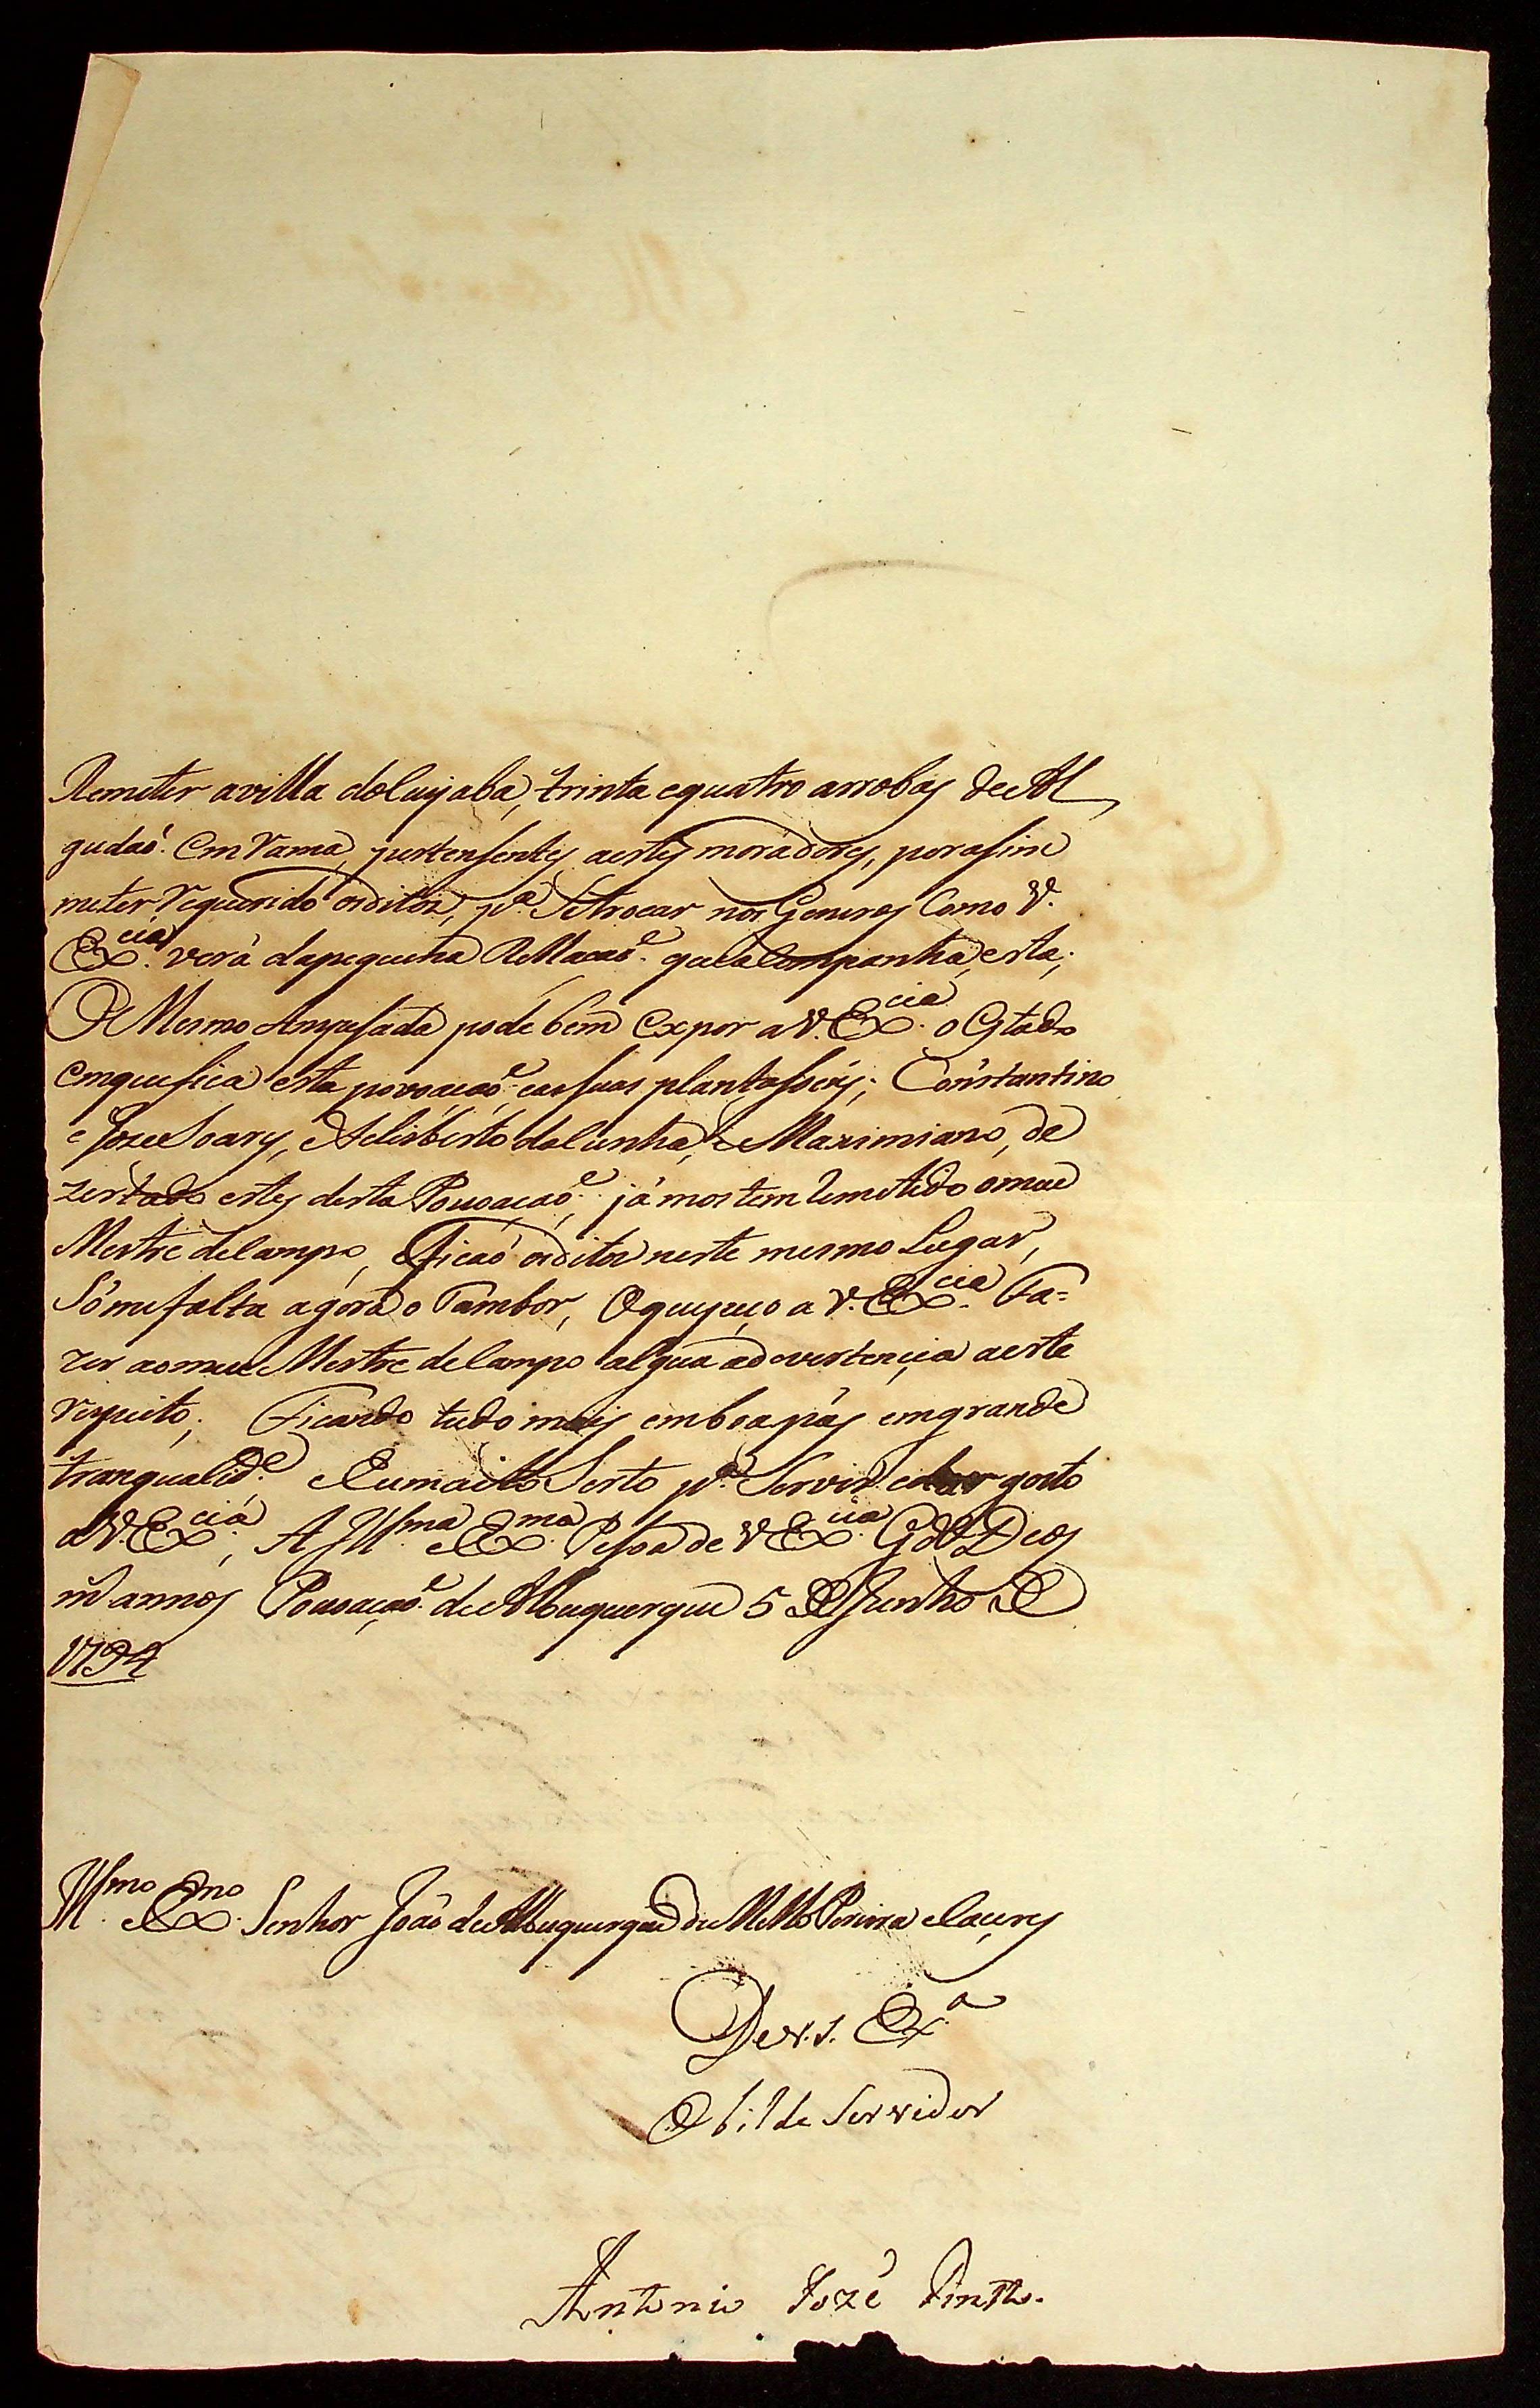 Remeter avilla doCuyaba, trinta equatro arrobas de Al
gudaõ. em Rama, pertensentes aestes moradores, porasim
meter Requerido osditos, p.ª Setrocar nos Generos Como V.
Ex.cia verá dapequena Rellacaõ. que acompanha esta;
O Mesmo Anspesada pode bem Expor aV.Ex.cia o Estado
emquefica esta povoacaõ. easSuas plantassois; Constantino
e Joze Soares, e Felisberto daCunha, e Maximiano, de
zertado estes desta Povoacaõ. já mos tem Remetido omeu
Mestre deCampo, eficaõ osditos neste mesmo Lugar,
Sómefalta agora o Tambor, Oquepeço a V.Ex.cia Fa=
zer aomeu Mestre deCampo algua adevertencia aeste
respeito; Ficando tudo mais emboapás emgrande
tranqualid.e eEumaito Serto p.ª Servir edar gosto
aV.Ex.cia, A Ill.ma eEx.ma Pesoa de V Ex.cia Gd.e Deos
m.s annos Povoaçaõ. de Albuquerque 5 de Junho de
1794
Ill.mo e Ex.mo Senhor Joaõ de Albuquerque de Mello Pereira eCaceres
De V. S. Ex.ª
O bilde Servidor
Antonio Jozé Pintto.